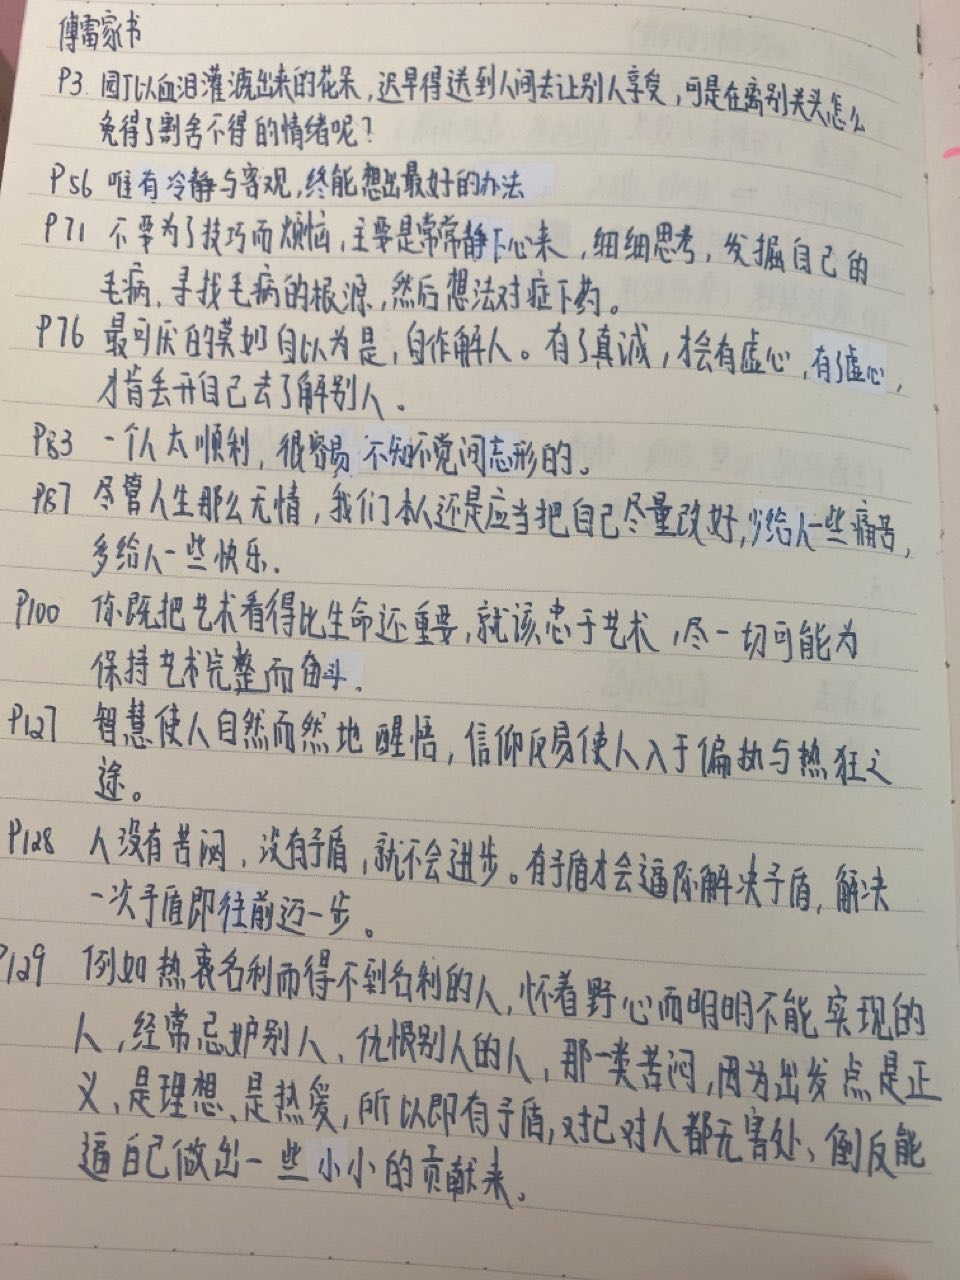 傅雷家书
P3. 园丁以血泪灌溉出来的花朵，迟早得送到人间去让别人享受，可是在离别关头怎么
免得了割舍不得的情绪呢？
P56 唯有冷静与客观，终能想出最好的办法
P71 不要为了技巧而烦恼，主要是常常静下心来，细细思考，发掘自己的
毛病，寻找毛病的根源，然后想法对症下药。
P76 最可厌的莫如自以为是，自作解人。有了真诚，才会有虚心，有了虚心，
才肯丢开自己去了解别人。
P83 一个人太顺利，很容易不知不觉间忘形的。
P87 尽管人生那么无情，我们本人还是应当把自己尽量改好，少给人一些痛苦，
多给人一些快乐.
P100 你既把艺术看得比生命还重要，就该忠于艺术，尽一切可能为
保持艺术完整而奋斗.
P127 智慧使人自然而然地醒悟，信仰反易使人入于偏执与热狂之
途。
P128 人没有苦闷，没有矛盾，就不会进步。有矛盾才会逼你解决矛盾，解决
一次矛盾即往前迈一步。
P129 例如热衷名利而得不到名利的人，怀着野心而明明不能实现的
人，经常忌妒别人、仇恨别人的人，那一类苦闷，因为出发点是正
义、是理想、是热爱，所以即有矛盾，对己对人都无害处、倒反能
逼自己做出一些小小的贡献来。